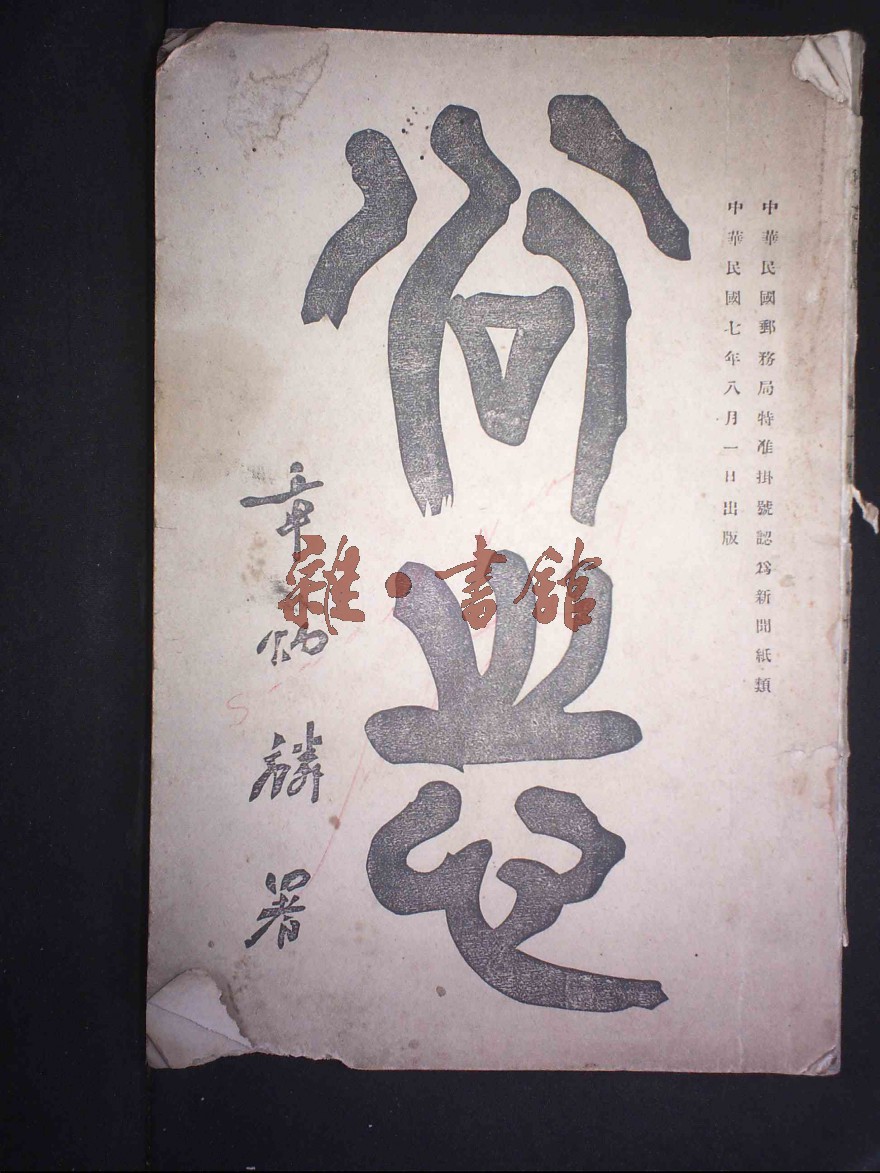 中華民國郵務局特准掛號認爲新聞紙類
中華民國七年八月一日出版
尙志
章炳麟署
雜·書館